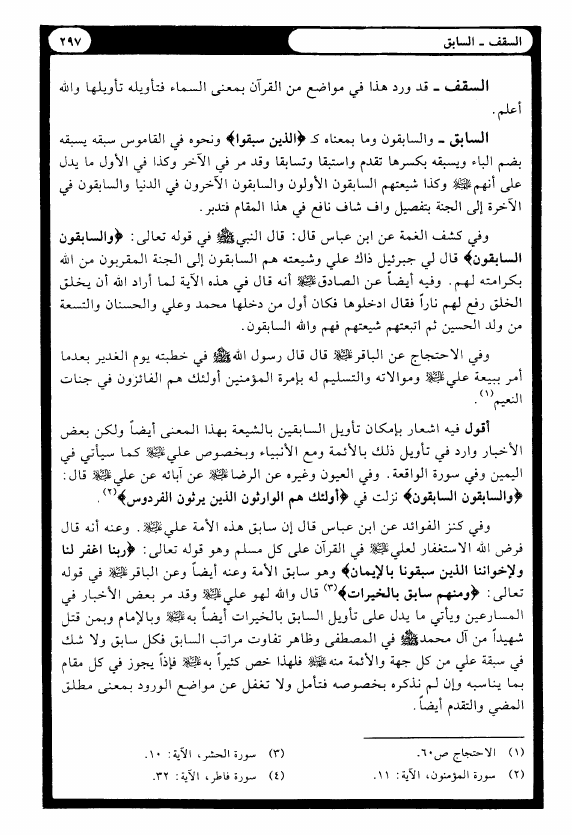 السقف ـ السابق
٢٩٧
السقف ـ قد ورد هذا في مواضع من القرآن بمعنى السماء فتأويله تأويلها والله
أعلم.
السابق ـ والسابقون وما بمعناه كـ ﴿الذين سبقوا﴾ ونحوه في القاموس سبقه يسبقه
بضم الباء ويسبقه بكسرها تقدم واستبقا وتسابقا وقد مر في الآخر وكذا في الأول ما يدل
على أنهم عليهم السلام وكذا شيعتهم السابقون الأولون والسابقون الآخرون في الدنيا والسابقون في
الآخرة إلى الجنة بتفصيل واف شاف نافع في هذا المقام فتدبر.
وفي كشف الغمة عن ابن عباس قال: قال النبي ﷺ في قوله تعالى: ﴿والسابقون
السابقون﴾ قال لي جبرئيل ذاك علي وشيعته هم السابقون إلى الجنة المقربون من الله
بكرامته لهم. وفيه أيضاً عن الصادق عليه السلام أنه قال في هذه الآية لما أراد الله أن يخلق
الخلق رفع لهم ناراً فقال ادخلوها فكان أول من دخلها محمد وعلي والحسنان والتسعة
من ولد الحسين ثم اتبعتهم شيعتهم فهم والله السابقون.
وفي الاحتجاج عن الباقر عليه السلام قال قال رسول الله ﷺ في خطبته يوم الغدير بعدما
أمر ببيعة علي عليه السلام وموالاته والتسليم له بإمرة المؤمنين أولئك هم الفائزون في جنات
النعيم(١).
أقول فيه اشعار بإمكان تأويل السابقين بالشيعة بهذا المعنى أيضاً ولكن بعض
الأخبار وارد في تأويل ذلك بالأئمة ومع الأنبياء وبخصوص علي عليه السلام كما سيأتي في
اليمين وفي سورة الواقعة. وفي العيون وغيره عن الرضا عليه السلام عن آبائه عن علي عليه السلام قال:
﴿والسابقون السابقون﴾ نزلت في ﴿أولئك هم الوارثون الذين يرثون الفردوس﴾(٢).
وفي كنز الفوائد عن ابن عباس قال إن سابق هذه الأمة علي عليه السلام. وعنه أنه قال
فرض الله الاستغفار لعلي عليه السلام في القرآن على كل مسلم وهو قوله تعالى: ﴿ربنا اغفر لنا
ولإخواننا الذين سبقونا بالإيمان﴾ وهو سابق الأمة وعنه أيضاً وعن الباقر عليه السلام في قوله
تعالى: ﴿ومنهم سابق بالخيرات﴾(٣) قال والله لهو علي عليه السلام وقد مر بعض الأخبار في
المسارعين ويأتي ما يدل على تأويل السابق بالخيرات أيضاً به عليه السلام وبالإمام وبمن قتل
شهيداً من آل محمد ﷺ في المصطفى وظاهر تفاوت مراتب السابق فكل سابق ولا شك
في سبقة علي من كل جهة والأئمة منه عليه السلام فلهذا خص كثيراً به عليه السلام فإذاً يجوز في كل مقام
بما يناسبه وإن لم نذكره بخصوصه فتأمل ولا تغفل عن مواضع الورود بمعنى مطلق
المضي والتقدم أيضاً.
(١) الاحتجاج ص٦٠.
(٢) سورة المؤمنون، الآية: ١١.
(٣) سورة الحشر، الآية: ١٠.
(٤) سورة فاطر، الآية: ٣٢.